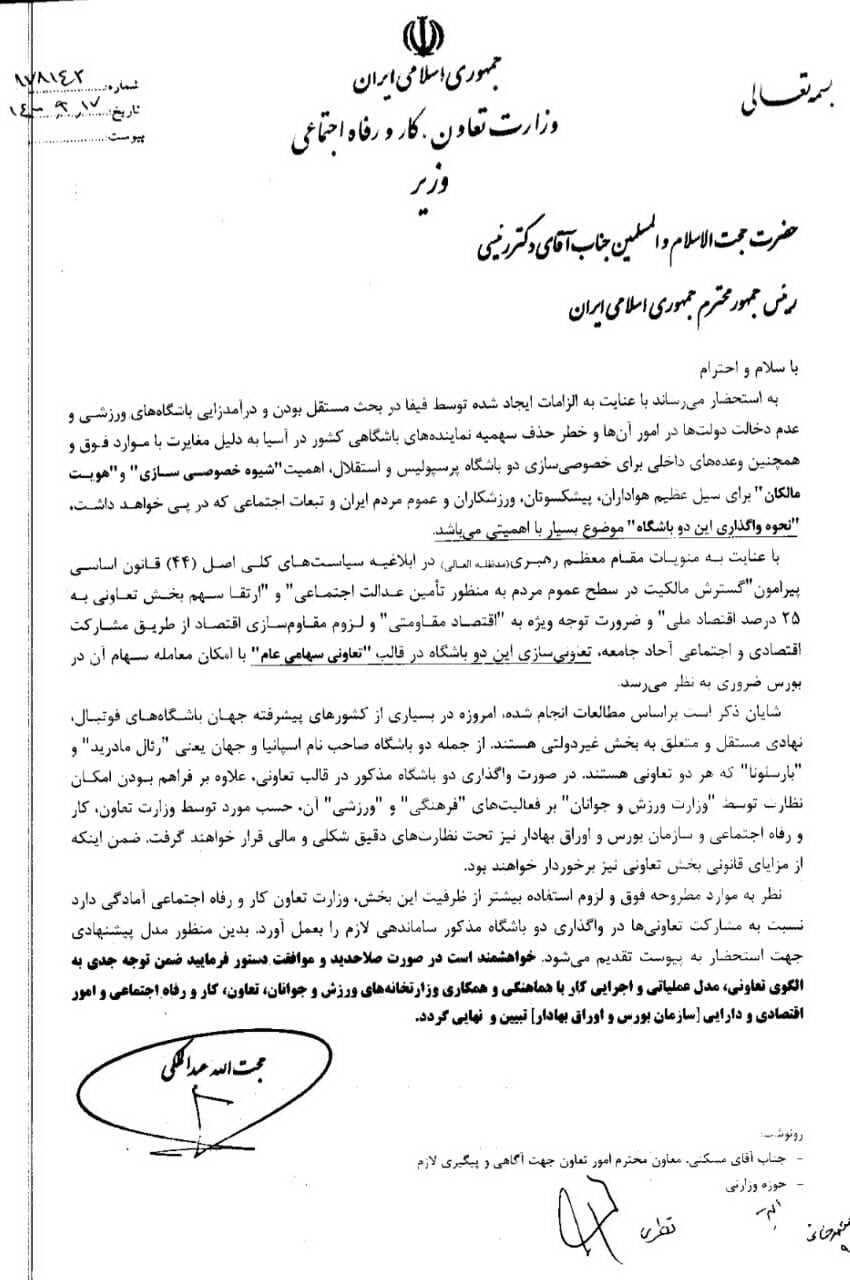 بسمه تعالی
جمهوری اسلامی ایران
وزارت تعاون، کار و رفاه اجتماعی
وزیر
شماره: ۹۷۸۱۴۲
تاریخ: ۱۴۰۰,۹,۱۷
پیوست:
حضرت حجت الاسلام و المسلمین جناب آقای دکتر رئیسی
رئیس جمهور محترم جمهوری اسلامی ایران
با سلام و احترام
به استحضار می‌رساند با عنایت به الزامات ایجاد شده توسط فیفا در بحث مستقل بودن و درآمدزایی باشگاه‌های ورزشی و
عدم دخالت دولت‌ها در امور آن‌ها و خطر حذف سهمیه نماینده‌های باشگاهی کشور در آسیا به دلیل مغایرت با موارد فوق و
همچنین وعده‌های داخلی برای خصوصی‌سازی دو باشگاه پرسپولیس و استقلال، اهمیت"شیوه خصوصی سازی" و"هویت
مالکان" برای سیل عظیم هواداران، پیشکسوتان، ورزشکاران و عموم مردم ایران و تبعات اجتماعی که در پی خواهد داشت،
"نحوه واگذاری این دو باشگاه" موضوع بسیار با اهمیتی می‌باشد.
با عنایت به منویات مقام معظم رهبری(مدظله العالی) در ابلاغیه سیاست‌های کلی اصل (۴۴) قانون اساسی
پیرامون"گسترش مالکیت در سطح عموم مردم به منظور تأمین عدالت اجتماعی" و "ارتقا سهم بخش تعاونی به
۲۵ درصد اقتصاد ملی" و ضرورت توجه ویژه به "اقتصاد مقاومتی" و لزوم مقاوم‌سازی اقتصاد از طریق مشارکت
اقتصادی و اجتماعی آحاد جامعه، تعاونی‌سازی این دو باشگاه در قالب "تعاونی سهامی عام" با امکان معامله سهام آن در
بورس ضروری به نظر می‌رسد.
شایان ذکر است براساس مطالعات انجام شده، امروزه در بسیاری از کشورهای پیشرفته جهان باشگاه‌های فوتبال،
نهادی مستقل و متعلق به بخش غیردولتی هستند. از جمله دو باشگاه صاحب نام اسپانیا و جهان یعنی "رئال مادرید" و
"بارسلونا" که هر دو تعاونی هستند. در صورت واگذاری دو باشگاه مذکور در قالب تعاونی، علاوه بر فراهم بودن امکان
نظارت توسط "وزارت ورزش و جوانان" بر فعالیت‌های "فرهنگی" و "ورزشی" آن، حسب مورد توسط وزارت تعاون، کار
و رفاه اجتماعی و سازمان بورس و اوراق بهادار نیز تحت نظارت‌های دقیق شکلی و مالی قرار خواهند گرفت. ضمن اینکه
از مزایای قانونی بخش تعاونی نیز برخوردار خواهند بود.
نظر به موارد مطروحه فوق و لزوم استفاده بیشتر از ظرفیت این بخش، وزارت تعاون کار و رفاه اجتماعی آمادگی دارد
نسبت به مشارکت تعاونی‌ها در واگذاری دو باشگاه مذکور ساماندهی لازم را بعمل آورد. بدین منظور مدل پیشنهادی
جهت استحضار به پیوست تقدیم می‌شود. خواهشمند است در صورت صلاحدید و موافقت دستور فرمایید ضمن توجه جدی به
الگوی تعاونی، مدل عملیاتی و اجرایی کار با هماهنگی و همکاری وزارتخانه‌های ورزش و جوانان، تعاون، کار و رفاه اجتماعی و امور
اقتصادی و دارایی [سازمان بورس و اوراق بهادار] تبیین و نهایی گردد.
حجت الله عبدالملکی
رونوشت:
- جناب آقای مسکنی، معاون محترم امور تعاون جهت آگاهی و پیگیری لازم
- حوزه وزارتی